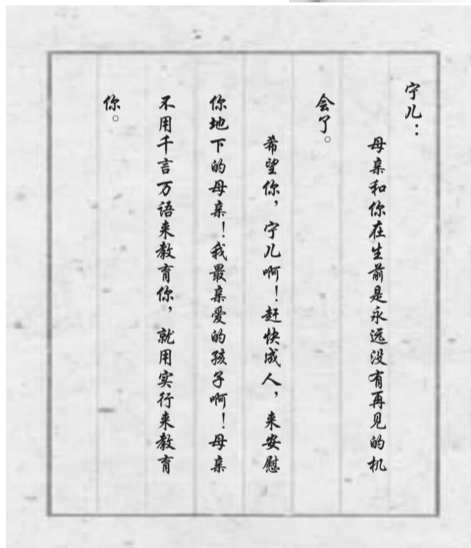 宁儿：
母亲和你在生前是永远没有再见的机
会了。
希望你，宁儿啊！赶快成人，来安慰
你地下的母亲！我最亲爱的孩子啊！母亲
不用千言万语来教育你，就用实行来教育
你。